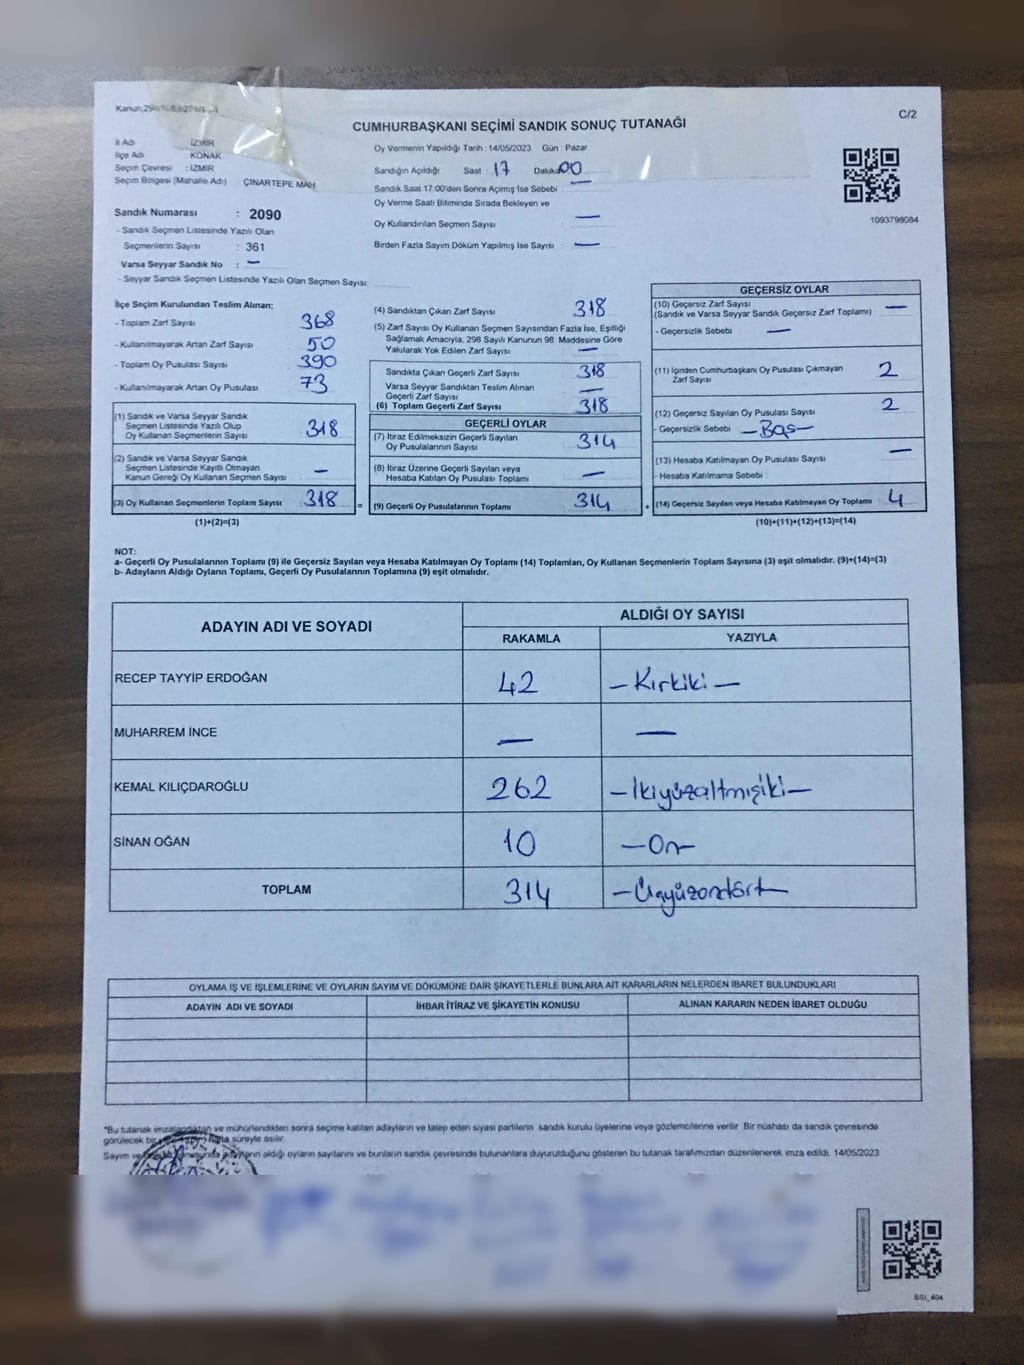 C/2
CUMHURBAŞKANI SEÇİMİ SANDIK SONUÇ TUTANAĞI
İl Adı : İZMİR
İlçe Adı KONAK
Seçim Çevresi : İZMİR
Seçim Bölgesi (Mahalle Adı) : ÇINARTEPE MAH.
Sandık Numarası : 2090
- Sandık Seçmen Listesinde Yazılı Olan
Seçmenlerin Sayısı : 361
Varsa Seyyar Sandık No : —
- Seyyar Sandık Seçmen Listesinde Yazılı Olan Seçmen Sayısı:
Oy Vermenin Yapıldığı Tarih : 14/05/2023 Gün : Pazar
Sandığın Açıldığı Saat : 17 Dakika 00
Sandık Saat 17:00'den Sonra Açılmış İse Sebebi : —
Oy Verme Saati Bitiminde Sırada Bekleyen ve
Oy Kullandırılan Seçmen Sayısı —
Birden Fazla Sayım Döküm Yapılmış İse Sayısı : —
1093798084
İlçe Seçim Kurulundan Teslim Alınan;
- Toplam Zarf Sayısı 368
- Kullanılmayarak Artan Zarf Sayısı : 50
- Toplam Oy Pusulası Sayısı : 390
- Kullanılmayarak Artan Oy Pusulası : 73
(1) Sandık ve Varsa Seyyar Sandık
Seçmen Listesinde Yazılı Olup
Oy Kullanan Seçmenlerin Sayısı 318
(2) Sandık ve Varsa Seyyar Sandık
Seçmen Listesinde Kayıtlı Olmayan
Kanun Gereği Oy Kullanan Seçmen Sayısı —
(3) Oy Kullanan Seçmenlerin Toplam Sayısı 318 =
(1)+(2)=(3)
(4) Sandıktan Çıkan Zarf Sayısı : 318
(5) Zarf Sayısı Oy Kullanan Seçmen Sayısından Fazla İse, Eşitliği
Sağlamak Amacıyla, 298 Sayılı Kanunun 98. Maddesine Göre
Yakılarak Yok Edilen Zarf Sayısı : —
Sandıkta Çıkan Geçerli Zarf Sayısı : 318
Varsa Seyyar Sandıktan Teslim Alınan
Geçerli Zarf Sayısı : —
(6) Toplam Geçerli Zarf Sayısı : 318
GEÇERLİ OYLAR
(7) İtiraz Edilmeksizin Geçerli Sayılan
Oy Pusulalarının Sayısı : 314
(8) İtiraz Üzerine Geçerli Sayılan veya
Hesaba Katılan Oy Pusulası Toplamı : —
(9) Geçerli Oy Pusulalarının Toplamı : 314 +
GEÇERSİZ OYLAR
(10) Geçersiz Zarf Sayısı
(Sandık ve Varsa Seyyar Sandık Geçersiz Zarf Toplamı) —
- Geçersizlik Sebebi : —
(11) İçinden Cumhurbaşkanı Oy Pusulası Çıkmayan
Zarf Sayısı : 2
(12) Geçersiz Sayılan Oy Pusulası Sayısı 2
- Geçersizlik Sebebi — Boş —
(13) Hesaba Katılmayan Oy Pusulası Sayısı : —
- Hesaba Katılmama Sebebi :
(14) Geçersiz Sayılan veya Hesaba Katılmayan Oy Toplamı : 4
(10)+(11)+(12)+(13)=(14)
NOT:
a- Geçerli Oy Pusulalarının Toplamı (9) ile Geçersiz Sayılan veya Hesaba Katılmayan Oy Toplamı (14) Toplamları, Oy Kullanan Seçmenlerin Toplam Sayısına (3) eşit olmalıdır. (9)+(14)=(3)
b- Adayların Aldığı Oyların Toplamı, Geçerli Oy Pusulalarının Toplamına (9) eşit olmalıdır.
ADAYIN ADI VE SOYADI ALDIĞI OY SAYISI
RAKAMLA YAZIYLA
RECEP TAYYİP ERDOĞAN 42 — Kırkiki —
MUHARREM İNCE — —
KEMAL KILIÇDAROĞLU 262 — İkiyüzaltmışiki —
SİNAN OĞAN 10 — On —
TOPLAM 314 — Üçyüzondört —
OYLAMA İŞ VE İŞLEMLERİNE VE OYLARIN SAYIM VE DÖKÜMÜNE DAİR ŞİKAYETLERLE BUNLARA AİT KARARLARIN NELERDEN İBARET BULUNDUKLARI
ADAYIN ADI VE SOYADI İHBAR İTİRAZ VE ŞİKAYETİN KONUSU ALINAN KARARIN NEDEN İBARET OLDUĞU
*Bu tutanak imzalandıktan ve mühürlendikten sonra seçime katılan adayların ve talep eden siyasi partilerin sandık kurulu üyelerine veya gözlemcilerine verilir. Bir nüshası da sandık çevresinde
görülecek bir hafta süreyle asılır.
Sayım ve adayların aldığı oyların sayılarını ve bunların sandık çevresinde bulunanlara duyurulduğunu gösteren bu tutanak tarafımızdan düzenlenerek imza edildi. 14/05/2023
SSI_404